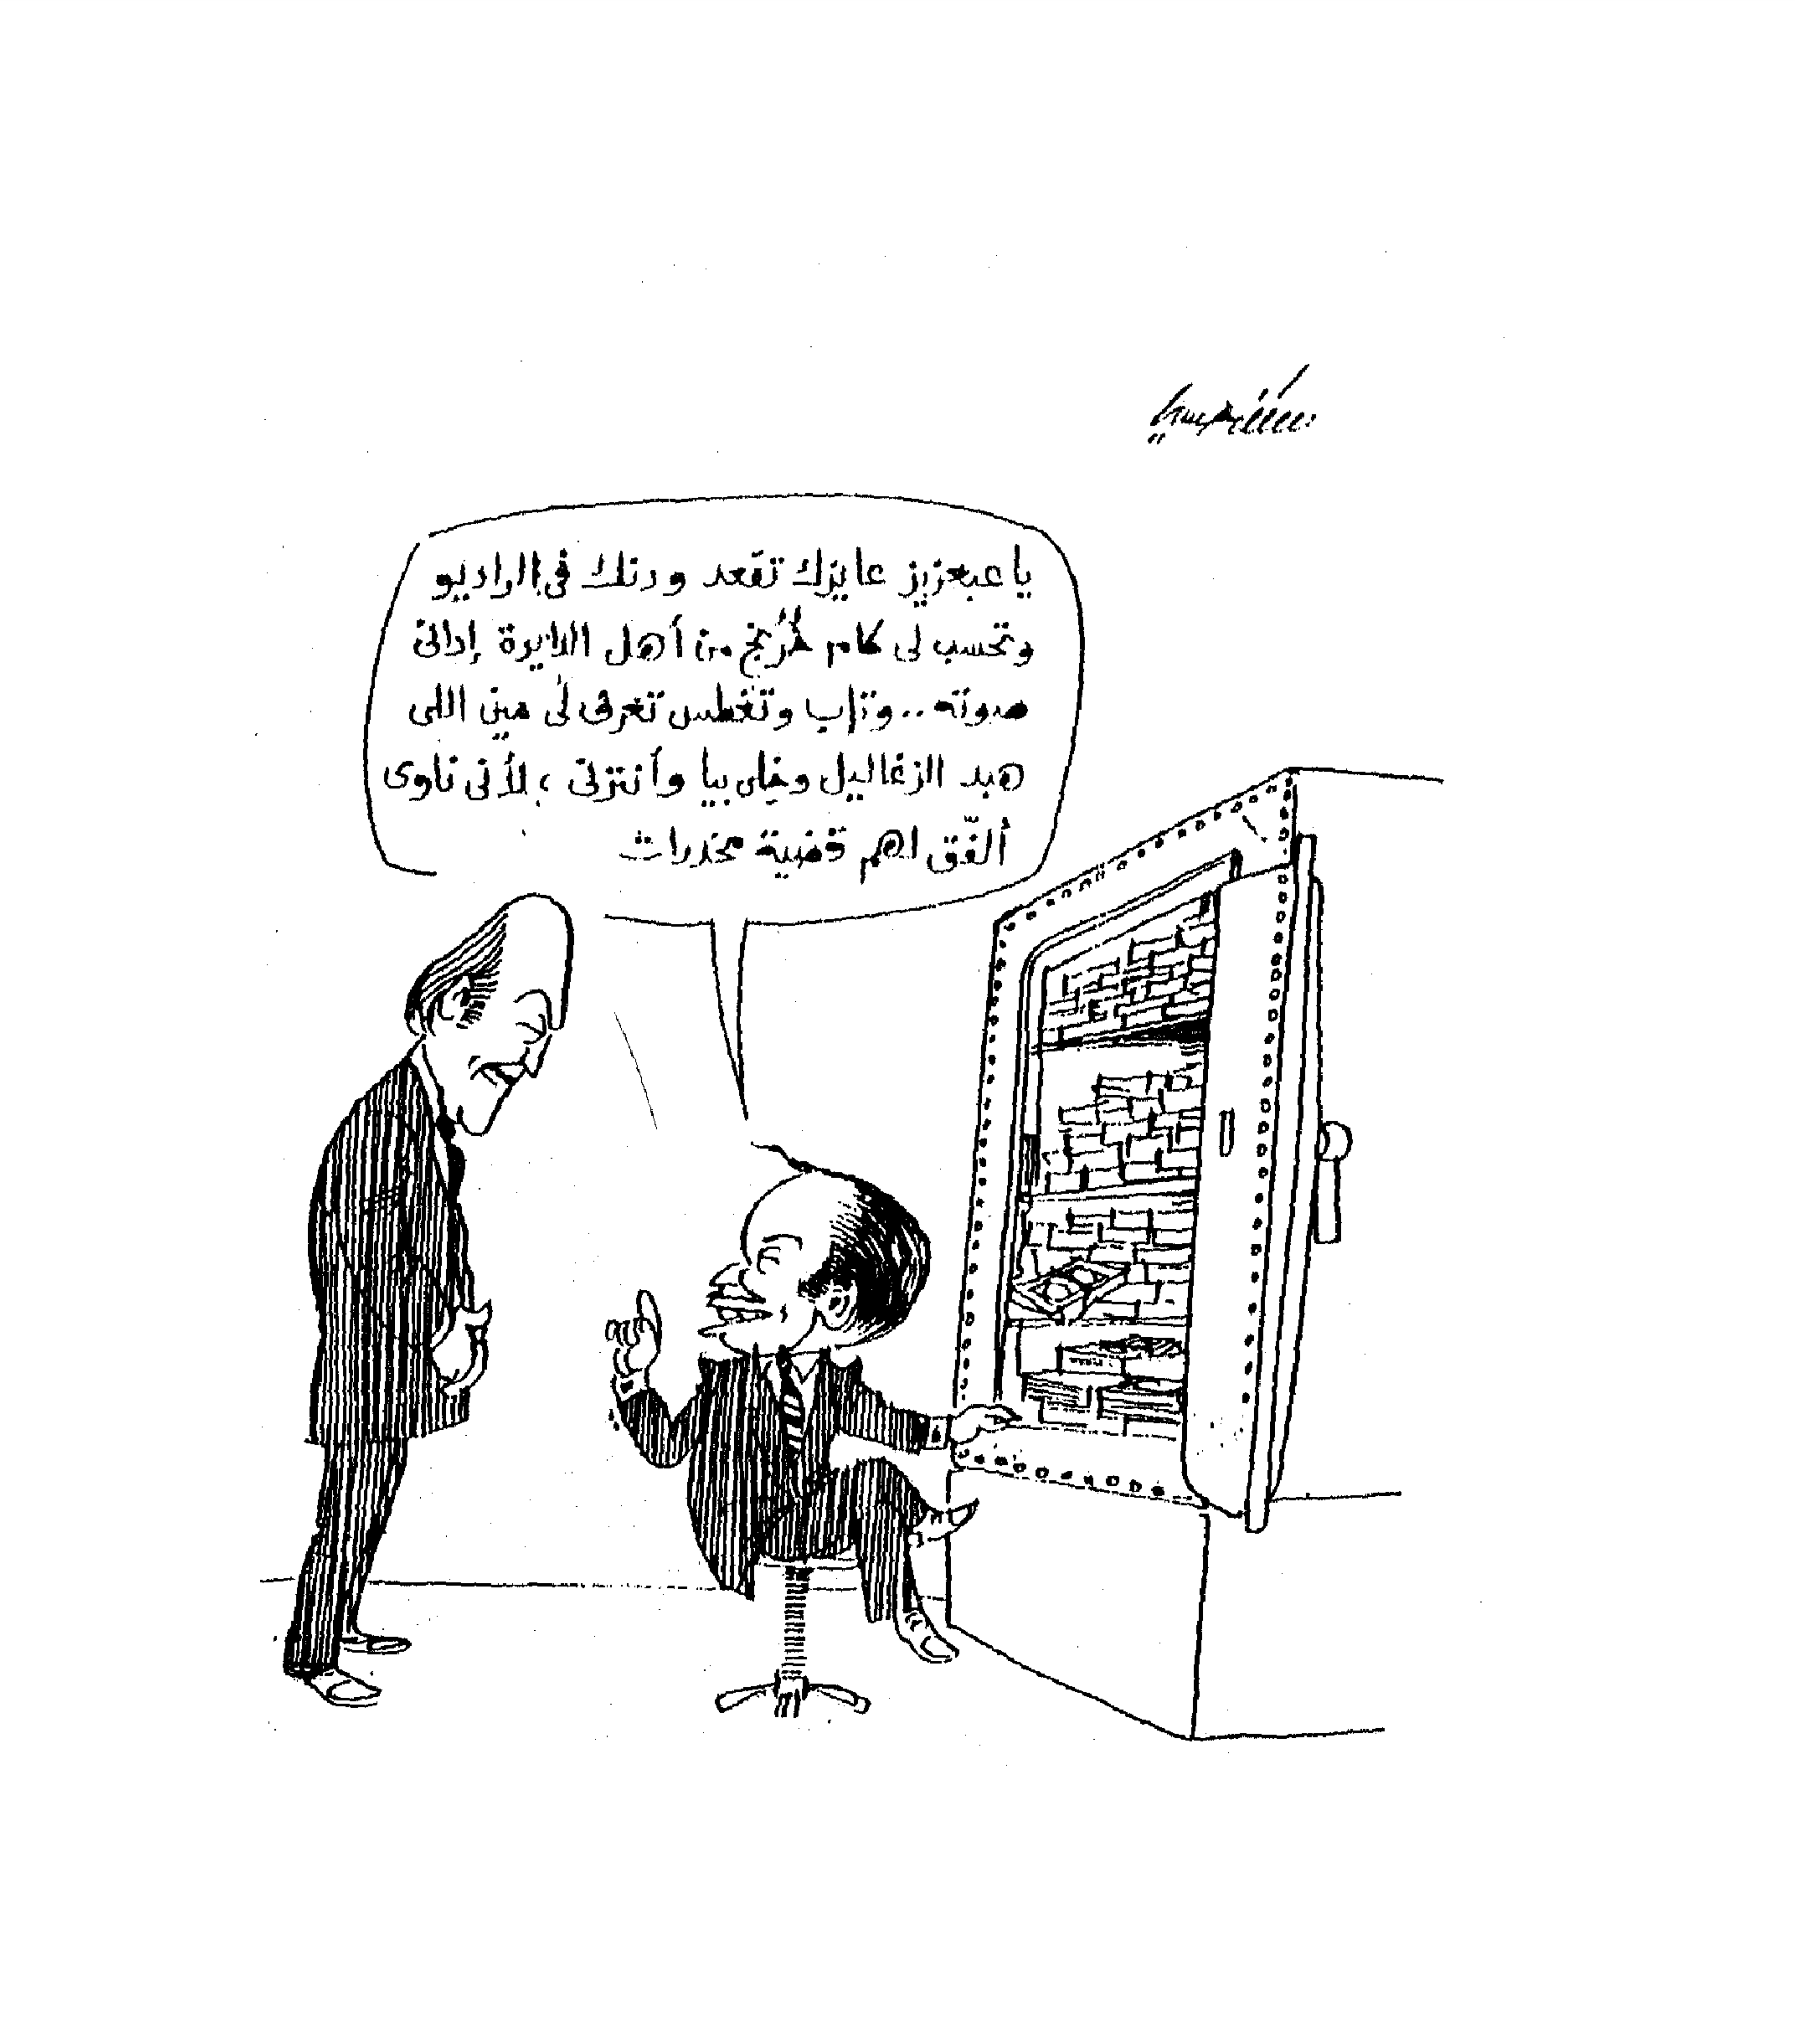 يا عبعزيز عايزك تقعد ودنك فى الراديو
وتحسب لى كام خُرُنج من أهل الدايرة إدانى
صوته .. وتاب وتغطس تعرف لى مين اللى
هبد الزغاليل وخِلى بيا وأنتزنى ، لأنى ناوى
ألفّق لهم قضية مخدرات